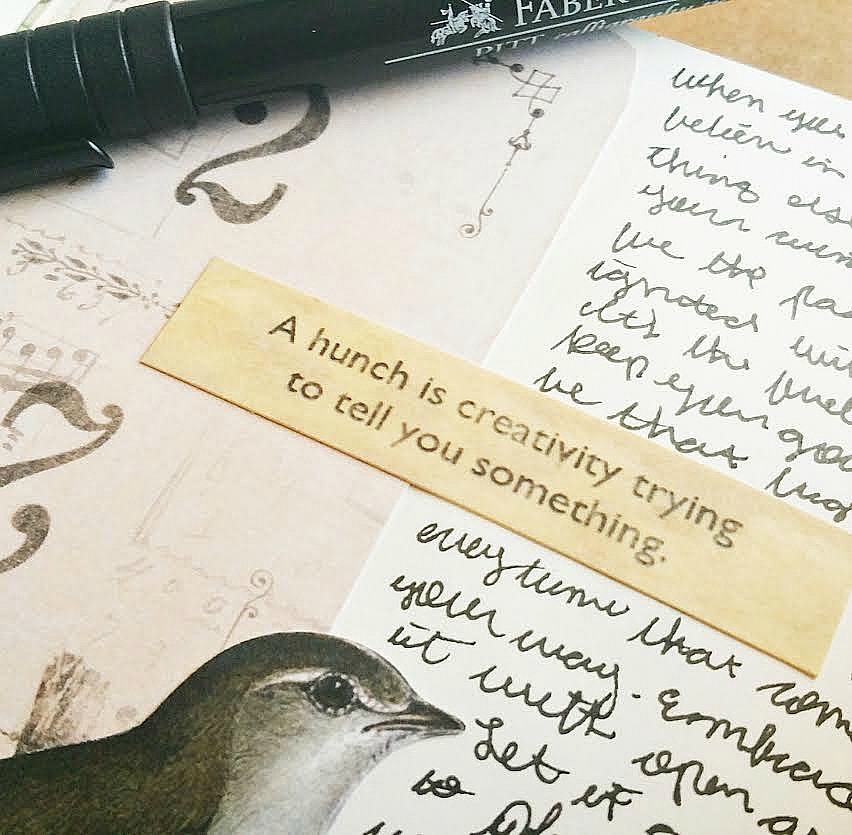 FABER
PITT
2
When you
believe in
thing
your
be the
ignited
it's the fuel
keep your
be that
A hunch is creativity trying
to tell you something.
2
everytime that
your way. Embrace
it with open
Let it
to